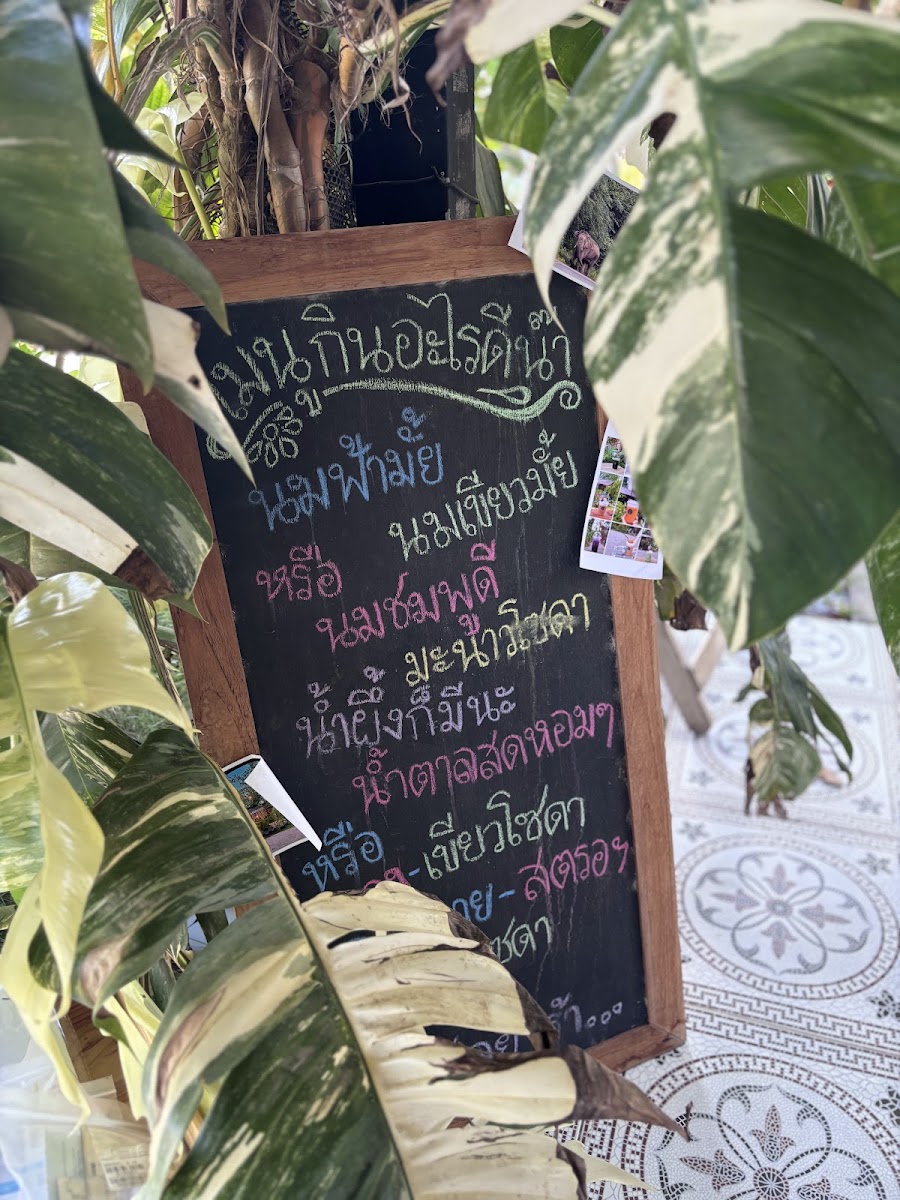 เมนูกินอะไรดีน๊า
นมฟ้ามั้ย
นมเขียวมั้ย
หรือ
นมชมพูดี
มะนาวโซดา
น้ำผึ้งก็มีนะ
น้ำตาลสดหอมๆ
หรือ
-เขียวโซดา
-สตรอฯ